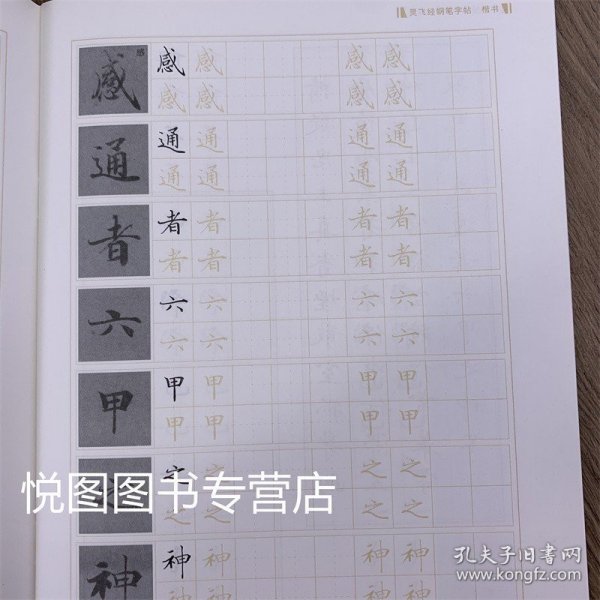 灵飞经钢笔字帖/楷书
感 感 感 感 感 感
感 感 感 感 感
通 通 通 通 通
通 通 通 通
者 者 者 者 者
者 者 者 者
六 六 六 六 六
六 六 六 六
甲 甲 甲 甲 甲
甲 甲 甲 甲
之 之 之 之
之 之 之 之
悦图图书专营店
神 神 神 神 神
神 神 神 神
孔夫子旧书网
www.kongfz.com